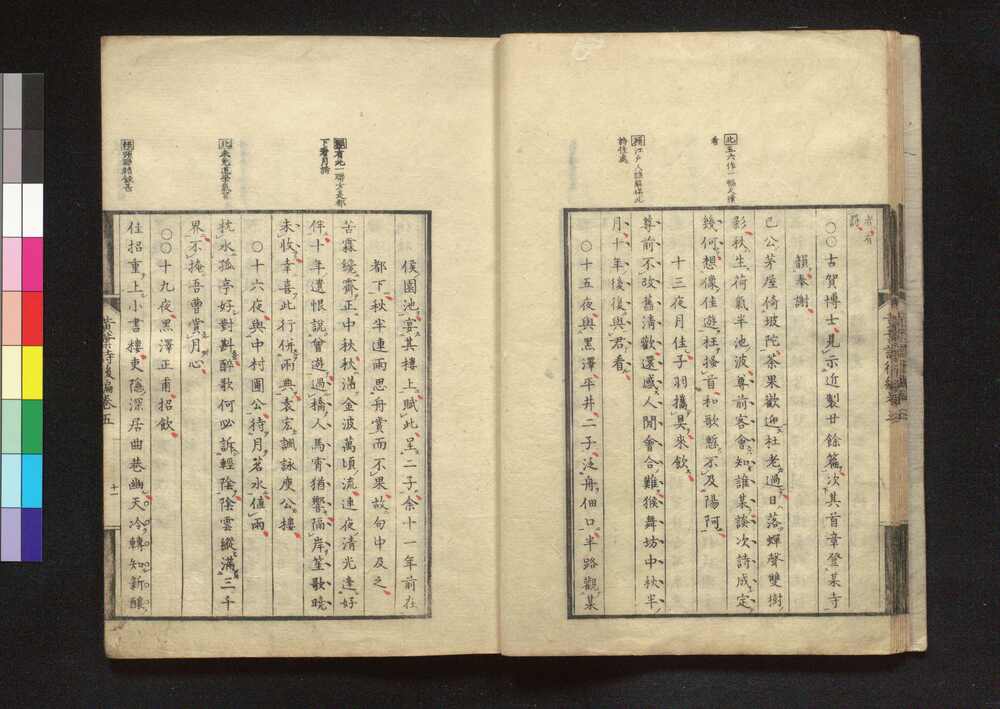 北五六作一幅天護
看
賴江戸人誰解作此
詩佳處
〇〇古賀博士見示近製廿餘篇次其首章登某寺
韻奉謝
已公茅屋倚坡陀茶果歡迎杜老過日落蟬聲雙樹
影秋生荷氣半池波尊前客會知誰某談次詩成定
幾何想像佳遊枉接首和歌慙不及陽阿
十三夜月佳子羽攜具來飲
尊前不改舊清歡還感人間會合難猴舞坊中秋半
月十年後後與君看
〇十五夜與黑澤平井二子泛舟佃口半路觀某
侯園池宴其樓上賦此呈二子余十一年前在
都下秋半連兩思舟賞而不果故句中及之
苦霖纔霽正中秋秋滿金波萬頃流連夜清光逢好
伴十年遺恨說曾遊過橋人馬宵猶響隔岸笙歌曉
未收幸喜此行併兩典袁宏諷詠庾公樓
〇十六夜與中村圃公待月茗永値雨
枕水孤亭好對斟醉歌何必訴輕陰陰雲縱滿三千
界不掩吾曹賞月心
〇〇十九夜黑澤正甫招飲
佳招重上小書樓更隱深居曲巷幽天冷轉知新釀
有此一聯方是都
下看月詩
黃葉詩後編卷五
十一